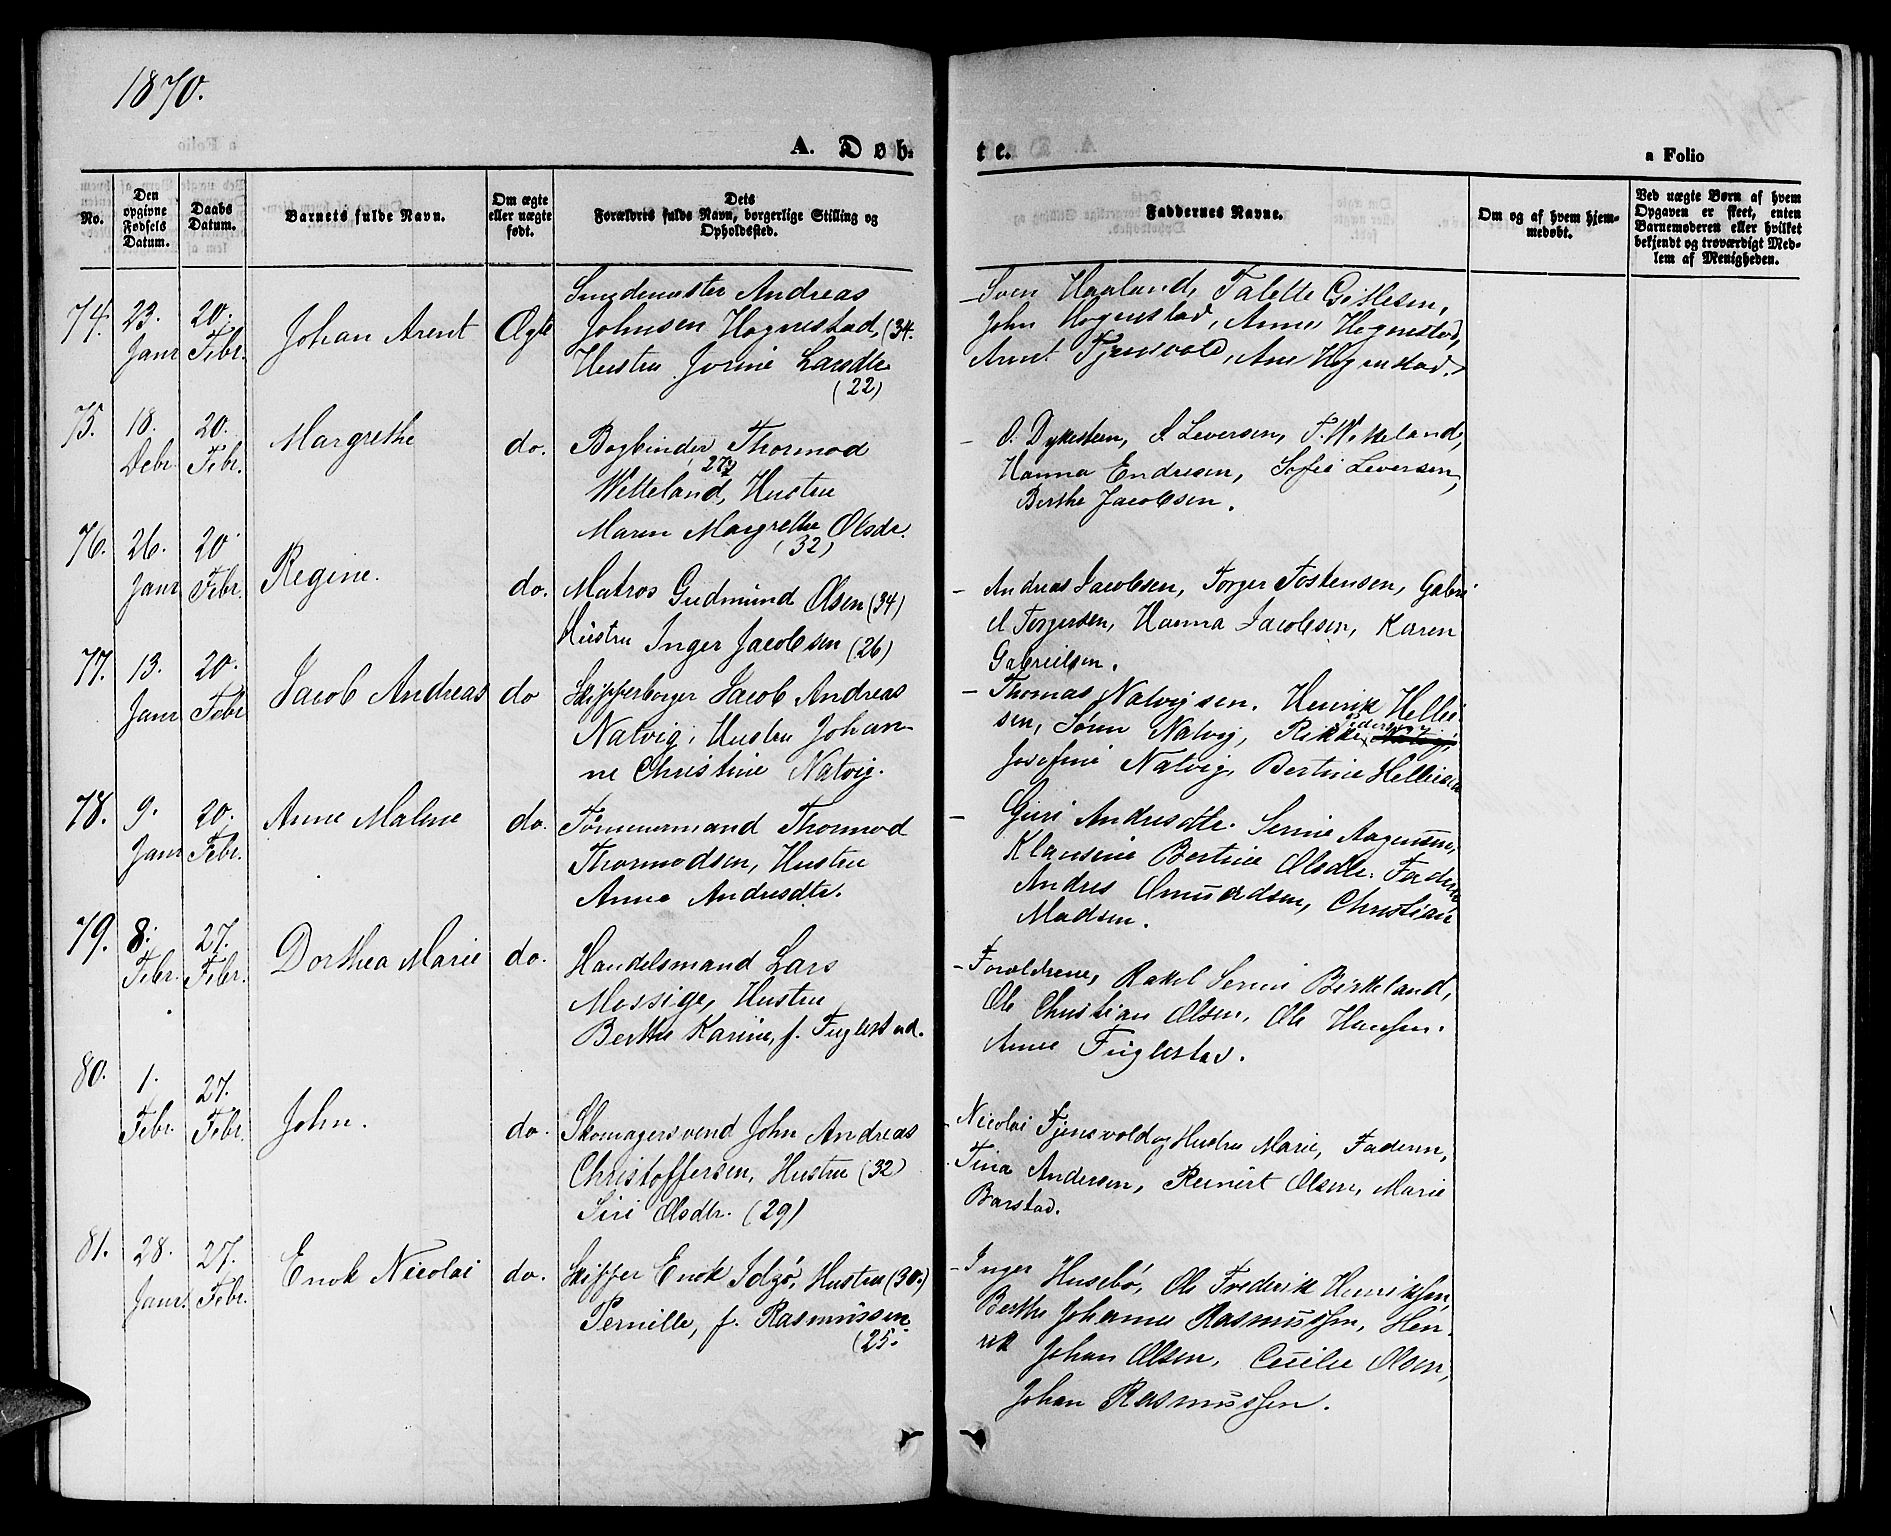 1870.
A. Døb-
te.
a Folio
No.
Den opgivne Fødsels Datum.
Daabs Datum.
Barnets fulde Navn.
Om ægte eller uægte født.
Dets Forældris fulde Navn, borgerlige Stilling og Opholdssted.
Faddernes Navne.
Om og af hvem hjemmedøbt.
Ved uægte Børn af hvem Opgaven er skeet, enten Barnemoderen eller hvilket bekjendt og troværdigt Medlem af Menigheden.
74. 23. Janr 20. Febr. Johan Arent Ægte
Smedemester Andreas
Johnsen Hognestad, (34.
Hustru Jorine Larsdtr
(22)
- Sven Haaland, Talette Gitlesen,
John Hognestad, Anne Hognestad,
Arent Fjensvold, Ane Hognestad.
75. 18. Debr. 20. Febr. Margrethe do.
Bogbinder Thormod
27½
Wetteland, Hustru
Maren Margrethe Olsdr.
(32)
- O. Dykesteen, S Leversen, T. Wetteland,
Hanna Endresen, Sofie Leversen,
Berthe Jacobsen.
76. 26. Janr 20 Febr. Regine. do.
Matros Gudmund Olsen (34)
Hustru Inger Jacobsen (26)
- Andreas Jacobsen, Torger Tostensen, Gabri
el Torgersen, Hanna Jacobsen, Karen
Gabrielsen.
77. 13. Janr 20. Febr Jacob Andreas do
Skipperborger Jacob Andreas
Natvig, Hustru Johan-
ne Christine Natvig.
- Thomas Natvigsen. Henrik Hellie-
sen, Søren Natvig, Rikke Pedersen
Josefine Natvig, Bertine Helliesen
78. 9. Janr 20. Febr. Anne Malene do.
Tømmermand Thormod
Thormodsen, Hustru
Anna Andresdtr.
- Guri Andresdtr. Serine Aagensen,
Klausine Bertine Olsdtr. Faderen
Andres Omundsen, Christian
Madsen.
79. 8. Febr. 27. Febr. Dorthea Marie do.
Handelsmand Lars
Mossige, Hustru
Berthe Karine, f. Fuglestad.
- Forældrene, Rakel Serine Birkeland,
Ole Christian Olsen, Ole Hansen.
Anne Fuglestad.
80. 1. Febr. 27. Febr. John. do.
Skomagersvend John Andreas
Christoffersen, Hustru (32)
Siri Olsdtr. (29)
- Nicolai Fjensvold og Hustru Marie, Faderen,
Tina Andersen, Reinert Olsen, Marie
Barstad.
81. 28. Janr. 27. Febr. Enok Nicolai do.
Skipper Enok Idsø, Hustru (30.)
Pernille, f. Rasmussen
(25.
- Inger Husebø, Ole Fredrik Henriksen,
Berthe Johanne Rasmussen, Hen-
rik Johan Olsen, Cecilie Olsen,
Johan Rasmussen.